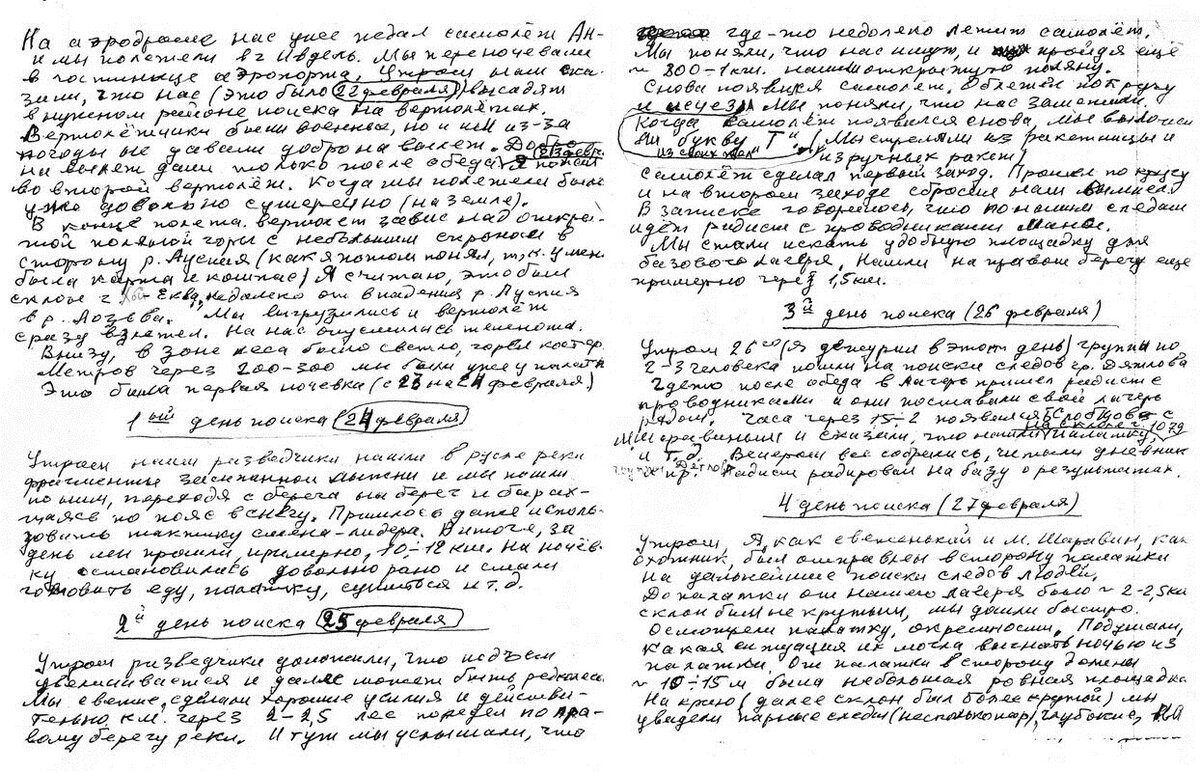 На аэродроме нас уже ждал самолёт Ан-
и мы полетели в г Ивдель. Мы переночевали
в гостинице аэропорта. Утром нам ска-
зали, что нас (это было 22 февраля) высадят
в нужном районе поиска на вертолётах.
Вертолётчики были военные, но и им из-за
погоды не давали добро на вылет. Добро
на вылет дали только после обеда. Я попал
во второй вертолёт. Когда мы полетели было
уже довольно сумеречно (на земле).
В конце полета вертолёт завис над откры-
той поляной горы с небольшим склоном в
сторону р. Ауспия (как я потом понял, т.к. у меня
была карта и компас) Я считаю, это был
склон г. Еква, недалеко от впадения р. Ауспия
в р. Лозьва. Мы выгрузились и вертолёт
сразу взлетел. На нас опустилась темнота.
Внизу, в зоне леса было светло, горел костёр.
Метров через 200-300 мы были уже у палатк
Это была первая ночёвка (с 23 на 24 февраля)
1ый день поиска (24 февраля)
Утром наши разведчики нашли в русле реки
фрагменты засыпанной лыжни и мы пошли
по ним, переходя с берега на берег и барах-
таясь по пояс в снегу. Пришлось даже исполь-
зовать тактику смена-лидера. В итоге, за
день мы прошли, примерно, 10÷12 км. На ночёв-
ку остановились довольно рано и стали
готовить еду, палатку, сушиться и т.д.
2й день поиска (25 февраля)
Утром разведчики доложили, что подъем
увеличивается и далее может быть редколесь
Мы свежие, сделали хорошие усилия и действи-
тельно, км. через 2-2,5 лес поредел по пра-
вому берегу реки. И тут мы услышали, что
где-то недалеко летит самолёт.
Мы поняли, что нас ищут, и пройдя ещё
~ 800÷1км. нашли открытую поляну.
Снова появился самолёт. Облетел по кругу
и исчез. Мы поняли, что нас заметили.
Когда самолёт появился снова, мы выложи
ли букву "Т" (Мы стреляли из ракетницы и
из своих тел из ручных ракет)
Самолёт сделал первый заход. Прошел по кругу
и на втором заходе сбросил нам вымпел.
В записке говорилось, что по нашим следам
идёт радист с проводниками манси.
Мы стали искать удобную площадку для
базового лагеря. Нашли на правом берегу ещё
примерно через 1,5 км.
3й день поиска (26 февраля)
Утром 26го (я дежурил в этот день) группы по
2-3 человека пошли на поиски следов гр. Дятлова
Где-то после обеда в лагерь пришел радист с
проводниками и они поставили свой лагерь
рядом. Часа через 1,5÷2 появился Б Слобцов с
М Шаравиным и сказали, что нашли палатку
на склоне г. 1079
и т.д. Вечером все собрались, читали дневник
группы Дятлова
и пр. Радист радировал на базу о результатах.
4 день поиска (27 февраля)
Утром Я, как свеженький и М. Шаравин, как
охотник, был отправлен в сторону палатки
на дальнейшие поиски следов людей.
До палатки от нашего лагеря было ~ 2-2,5км
склон был не крутым, мы дошли быстро.
Осмотрели палатку, окрестности. Подумали,
какая ситуация их могла выгнать ночью из
палатки. От палатки в сторону долины
~ 10÷15 м была небольшая ровная площадка
На краю (далее склон был более крутой) мы
увидели парные следы (несколько пар), глубокие,